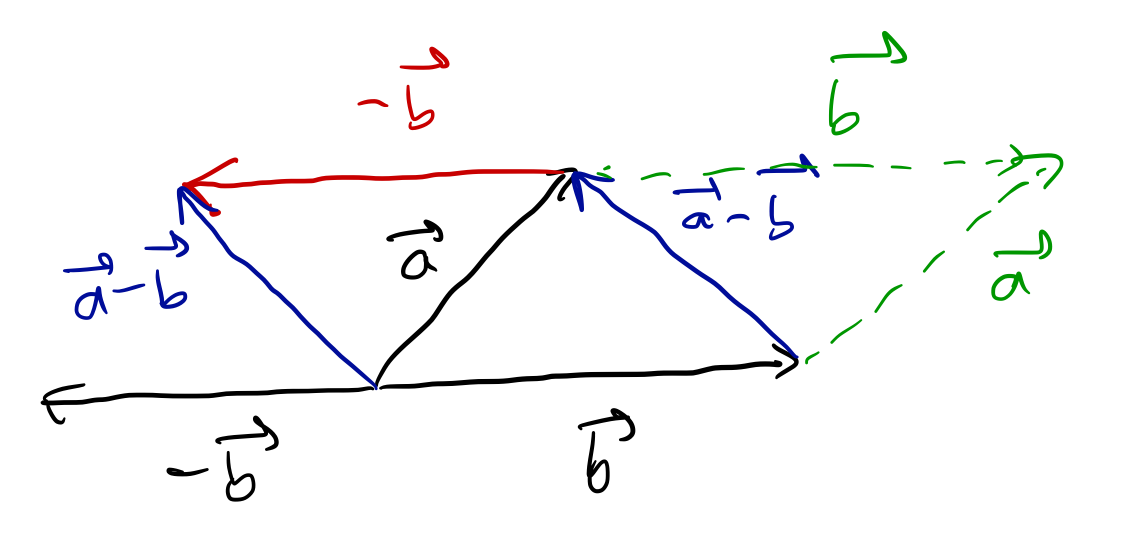 $-\vec{b}$
$\vec{b}$
$\vec{a}-\vec{b}$
$\vec{a}$
$\vec{a}-\vec{b}$
$\vec{a}$
$-\vec{b}$
$\vec{b}$